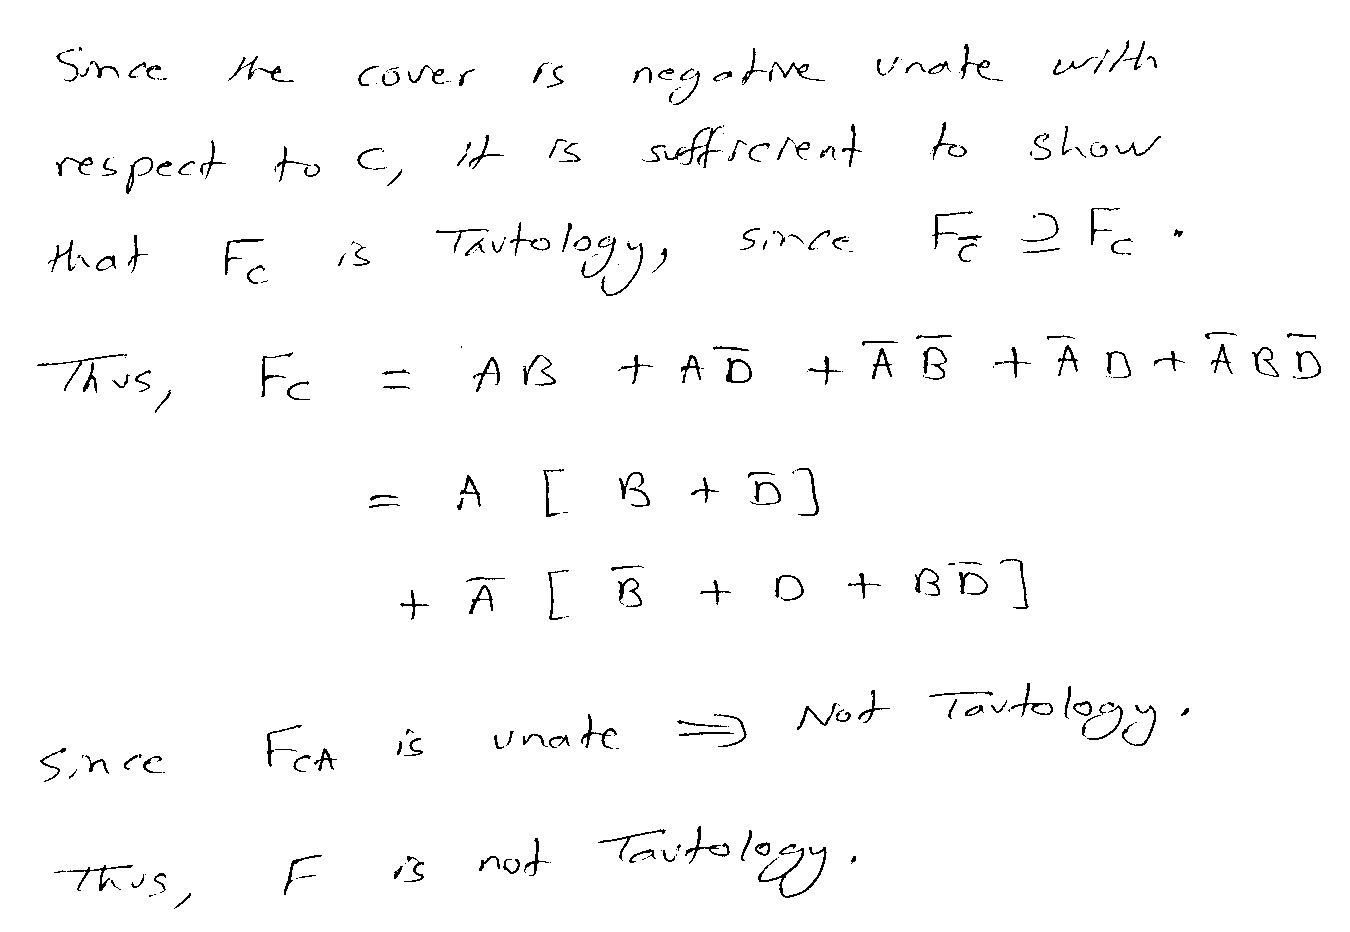 Since the cover is negative unate with
respect to C, it is sufficient to show
that F_C is Tautology, since F_C̅ ⊇ F_C .
Thus, F_C = A B + A D̅ + A̅ B̅ + A̅ D + A̅ B D̅
= A [ B + D̅ ]
+ A̅ [ B̅ + D + B D̅ ]
Since F_CA is unate ⇒ Not Tautology.
Thus, F is not Tautology.